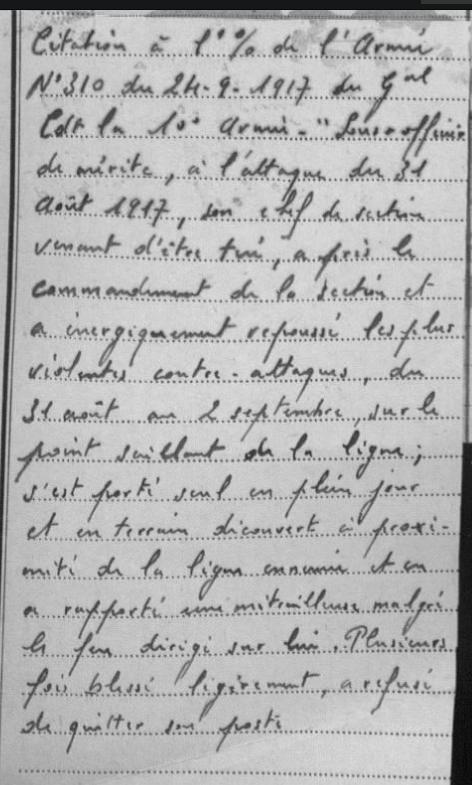 Citation à l'o% de l'Armée
N°310 du 24-9-1917 du Gal
Cdt la 10e Armée - "Sous-officier
de mérite, à l'attaque du 31
Août 1917, son chef de section
venant d'être tué, a pris le
commandement de la section et
a énergiquement repoussé les plus
violentes contre-attaques, du
31 août au 2 septembre, sur le
point saillant de la ligne ;
s'est porté seul en plein jour
et en terrain découvert à proxi-
mité de la ligne ennemie et en
a rapporté une mitrailleuse malgré
le feu dirigé sur lui. Plusieurs
fois blessé légèrement, a refusé
de quitter son poste